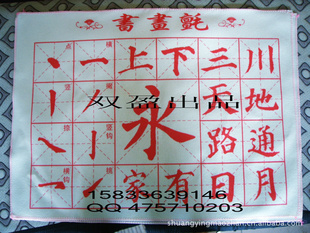 書畫氈
上下三川
天地
永
路通
家有日月
点
横
竖
双盈出品
15833639146
QQ 475710203
shuangyingmaozhan.cn.alibaba.com